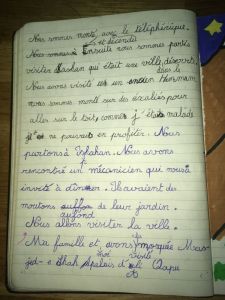 Nous sommes monté avec le téléphérique.
et décendé
Nous sommes à Ensuite nous sommes partis
visiter Kashan qui était une ville désert,
dans le
Nous avons visité un ancien Hammam
nous sommes monté sur des escaliés pour
aller sur le toit, comme j'étais malade
je ne pouvais en profiter. Nous
partons à Isfahan. Nous avons
rencontré un mécanicien qui nous
invité à dîner. Ils avaient des
moutons au fond de leur jardin.
au fond
Nous allons visiter la ville.
Ma famille et avons mosquée Mas-
moi visité
jed-e Shah palais d'Ali Qapu